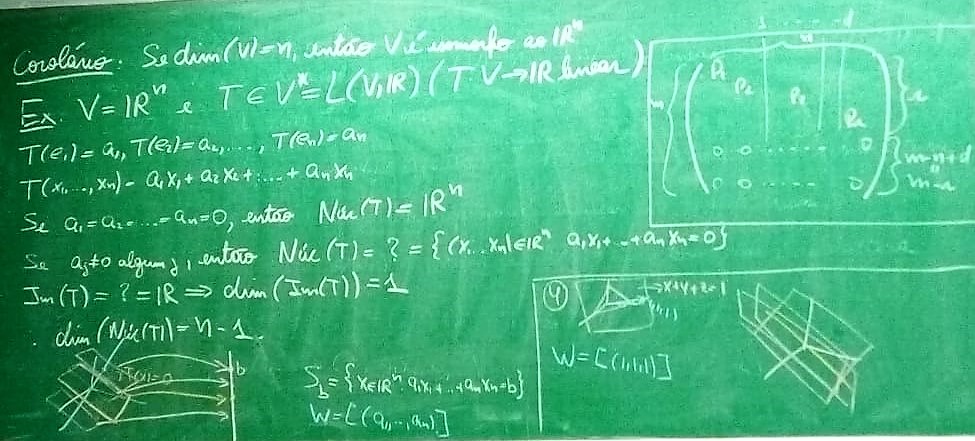 Corolário. Se dim(V)=n, então V é isomorfo ao IRⁿ
Ex. V=IRⁿ e T∈V*=L(V,IR) (T V→IR linear)
T(e₁)=a₁, T(e₂)=a₂,...., T(eₙ)=aₙ
T(x₁,...,xₙ)=a₁x₁+a₂x₂+....+aₙxₙ
Se a₁=a₂=...=aₙ=0, então Núc(T)=IRⁿ
Se aⱼ≠0 algum j, então Núc(T)=?={(x₁...xₙ)∈IRⁿ a₁x₁+..+aₙxₙ=0}
Im(T)=?=IR ⇒ dim(Im(T))=1
. dim(Núc(T))=n-1.
b
S_b={x∈IRⁿ: a₁x₁+..+aₙxₙ=b}
W=[(a₁,..,aₙ)]
n
m
P₁
P₂
0 0 ..... 0
m-n+d
0 0 ..... 0
4
x+y+z=1
W=[(1,1,1)]